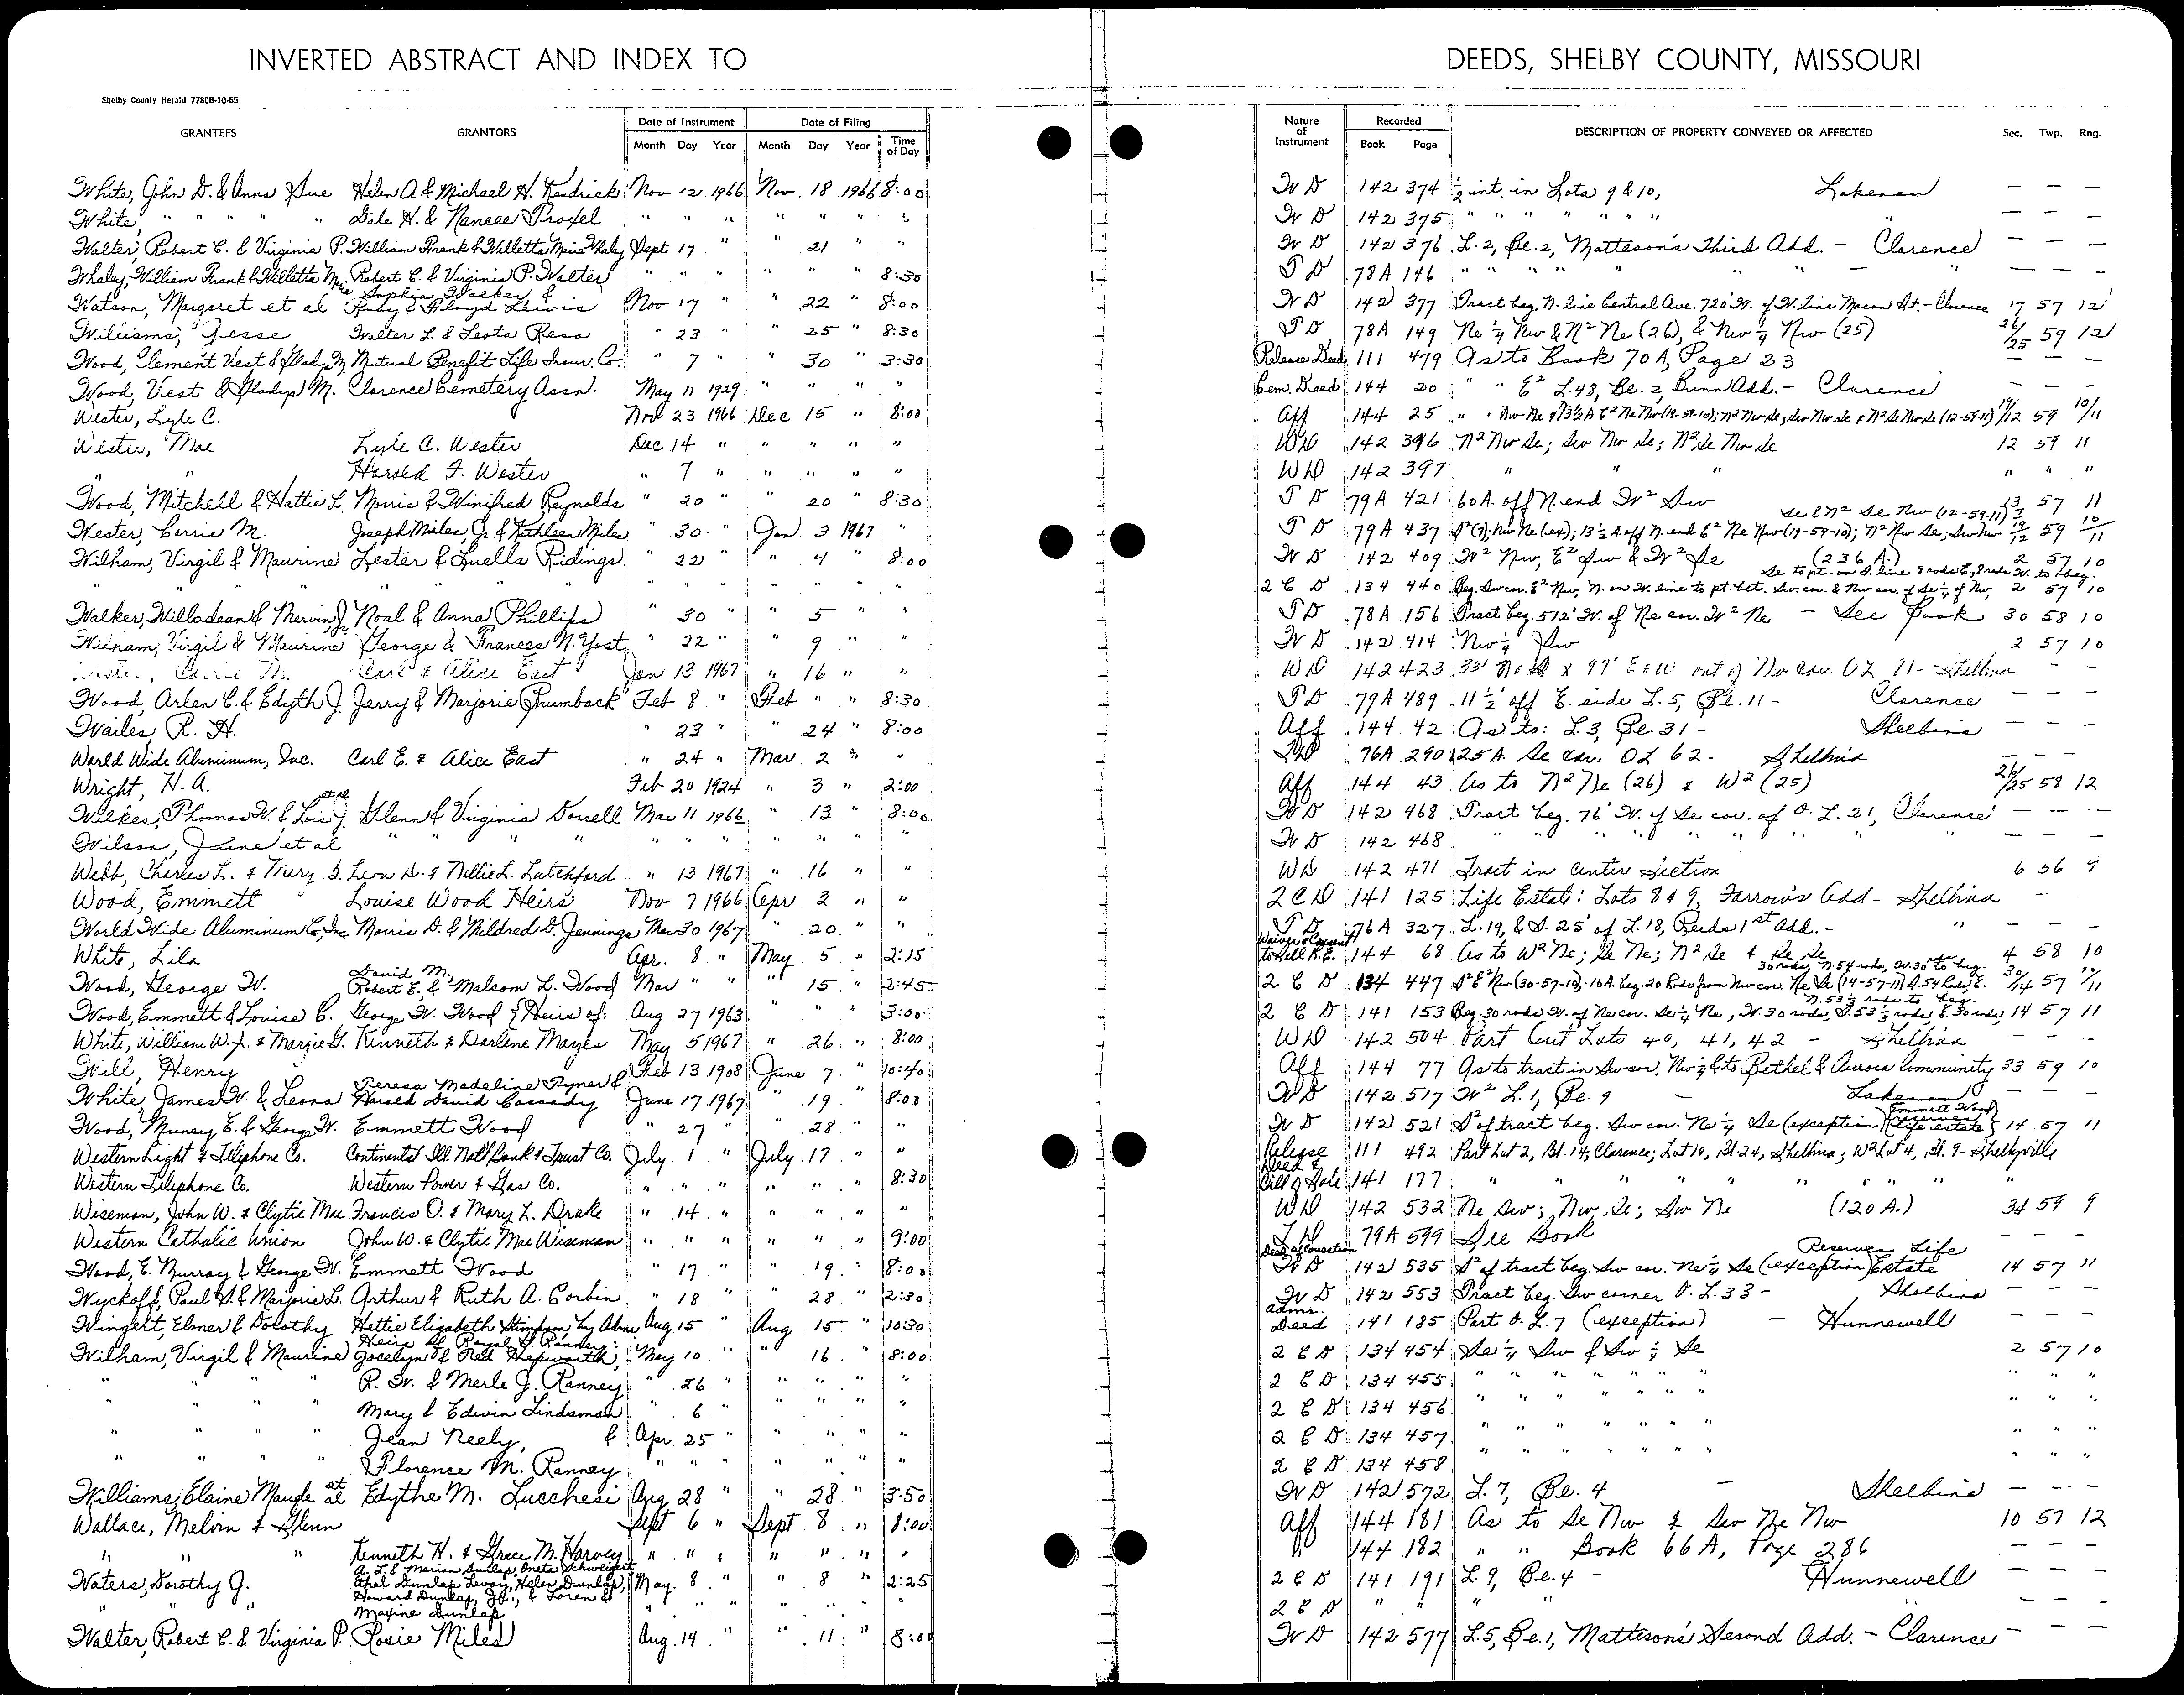 INVERTED ABSTRACT AND INDEX TO DEEDS, SHELBY COUNTY, MISSOURI
Shelby County Herald 7780B-10-65
GRANTEES GRANTORS Date of Instrument Date of Filing Nature of Instrument Recorded DESCRIPTION OF PROPERTY CONVEYED OR AFFECTED Sec. Twp. Rng.
Month Day Year Month Day Year Time of Day Book Page
White, John D. & Anna Sue Helen A. & Michael H. Kendrick Nov 12 1966 Nov. 18 1966 8:00 W D 142 374 ½ int. in Lots 9 & 10, Lakenan — — —
White, " " " " " Dale H. & Nancee Proxel " " " " " " " W D 142 375 " " " " " " " " — — —
Walter, Robert C. & Virginia P. William Frank & Willetta Marie Whaley Sept 17 " 21 " " W D 142 376 L. 2, Bl. 2, Matteson's Third Add. - Clarence — — —
Whaley, William Frank & Willetta Marie Robert C. & Virginia P. Walter " " " " " " 8:30 T D 78A 146 " " " " " " — " — — —
Watson, Margaret et al Sophia Walker & Ruby & Floyd Lewis Nov 17 " 22 " 8:00 W D 142 377 Tract beg. N. line Central Ave. 720' W. of W. line Macon St. - Clarence 17 57 12
Williams, Jesse Walter L. & Leota Ress " 23 " 25 " 8:30 T D 78A 149 Ne ¼ Nw & N² Ne (26), & Nw ¼ Nw (25) 26/25 59 12
Wood, Clement Vest & Gladys M. Mutual Benefit Life Insur. Co. " 7 " " 30 " 3:30 Release Deed 111 479 As to Book 70A, Page 23 — — —
Wood, Vest & Gladys M. Clarence Cemetery Assn. May 11 1929 " " " " Cem. Deed 144 20 " " E² L. 48, Bl. 2, Bunn Add. - Clarence — — —
Wester, Lyle C. Nov 23 1966 Dec 15 " 8:00 Aff 144 25 " " Nw Ne & 13½ A E² Ne Nw (19-59-10); N² Nw Se; Sw Nw Se & N² Se Nw Se (12-59-11) 19/12 59 10/11
Wester, Mae Lyle C. Wester Dec 14 " " " " " WD 142 396 N² Nw Se; Sw Nw Se; N² Se Nw Se 12 59 11
" " Harold F. Wester " 7 " " " " " WD 142 397 " " " " " "
Wood, Mitchell & Hattie L. Morris & Winifred Reynolds " 20 " " 20 " 8:30 T D 79A 421 60 A. off N. end W² Sw 13 57 11
Wester, Carrie M. Joseph Miles, Jr. & Kathleen Miles " 30 " Jan 3 1967 " T D 79A 437 S² (7); Nw Ne (ex); 13½ A. off N. end E² Ne Nw (19-59-10); N² Nw Se; Sw Nw Se & N² Se Nw (12-59-11) 59
Wilham, Virgil & Maurine Lester & Luella Ridings " 22 " " 4 " 8:00 W D 142 409 W² Nw, E² Sw & W² Se (236 A.) 2 57 10
" " " " " " " " " " " 2 C D 134 440 Beg. Sw cor. E² Nw, N. on W. line to pt. bet. Sw. cor. & Nw cor. of Se ¼ of Nw, Se to pt. on S. line 8 rods E., 8 rods W. to beg. 2 57 10
Walker, Willadean & Mervin Jr. Noal & Anna Phillips " 30 " " 5 " " T D 78A 156 Tract beg. 512' W. of Ne cor. W² Ne - See Book 30 58 10
Wilham, Virgil & Maurine George & Frances N. Yost " 22 " " 9 " " W D 142 414 Nw ¼ Sw 2 57 10
Wester, Carrie M. Carl & Alice East Jan 13 1967 " 16 " " WD 142 423 33' N & S x 97' E & W out of Nw cor. OL 91 - Shelbina — —
Wood, Arlen C. & Edyth J. Jerry & Marjorie Brumback Feb 8 " Feb " " 8:30 T D 79A 489 11½' off E. side L. 5, Bl. 11 - Clarence — — —
Wailes, R. H. " 23 " " 24 " 8:00 Aff 144 42 As to: L. 3, Bl. 31 - Shelbina — — —
World Wide Aluminum, Inc. Carl E. & Alice East " 24 " Mar 2 " " TD 76A 290 1.25 A. Se cor. OL 62 - Shelbina — — —
Wright, H. A. Feb 20 1924 " 3 " 2:00 Aff 144 43 As to N² Ne (26) & W² (25) 26/25 58 12
Wilkes, Thomas W. & Lois J. et al Glenn & Virginia Dorrell Mar 11 1966 " 13 " 8:00 W D 142 468 Tract beg. 76' W. of Se cor. of O. L. 21, Clarence — — —
Wilson, June et al " " " " " " " " " " W D 142 468 " " " " " " " " " — — —
Webb, Charles L. & Mary S. Leon D. & Nellie L. Latchford " 13 1967 " 16 " " WD 142 471 Tract in Center Section 6 56 9
Wood, Emmett Louise Wood Heirs Nov 7 1966 Apr 3 " " 2 C D 141 125 Life Estate: Lots 8 & 9, Farrow's Add - Shelbina —
World Wide Aluminum Co., Inc. Morris D. & Mildred D. Jennings Mar 30 1967 " 20 " " T D 76A 327 L. 19, & S. 25' of L. 18, Reids 1st Add. - " — —
White, Lila Apr. 8 " May 5 " 2:15 Waiver & Consent to Sell R.E. 144 68 As to W² Ne; Se Ne; N² Se & Se Se 4 58 10
Wood, George W. David M. Robert E. & Malcom L. Wood Mar " " " 15 " 2:45 2 C D 134 447 S² E² Nw (30-57-10); 10 A. beg. 20 Rods from Nw cor. Ne Se (14-57-11) S. 54 Rods, E. 30 rods, N. 54 rods, W. 30 rds to beg. 30/14 57 10/11
Wood, Emmett & Louise C. George W. Wood Heirs of: Aug 27 1963 " " " 3:00 2 C D 141 153 Beg. 30 rods W. of Ne cor. Se ¼ Ne, W. 30 rods, S. 53⅓ rods, E. 30 rods, N. 53⅓ rods to beg. 14 57 11
White, William W. Jr. & Margie G. Kenneth & Darlene Mayes May 5 1967 " 26 " 8:00 WD 142 504 Part Out Lots 40, 41, 42 - Shelbina — — —
Will, Henry Feb 13 1908 June 7 " 10:40 Aff 144 77 As to tract in Sw cor. Nw ¼ & to Bethel & Aurora Community 33 59 10
White, James W. & Leona Teresa Madeline Tyner & Harold David Cassady June 17 1967 " 19 " 8:00 W D 142 517 W² L. 1, Bl. 9 - Lakenan — — —
Wood, Murray E. & George W. Emmett Wood " 27 " 28 " " W D 142 521 S² of tract beg. Sw cor. Ne ¼ Se (exception) Emmett Wood reserves life estate 14 57 11
Western Light & Telephone Co. Continental Ill. Nat'l Bank & Trust Co. July 1 " July 17 " " Release Deed & 111 492 Part Lot 2, Bl. 14, Clarence; Lot 10, Bl. 24, Shelbina; W² Lot 4, Bl. 9 - Shelbyville
Western Telephone Co. Western Power & Gas Co. " " " " " " 8:30 Bill of Sale 141 177 " " " " " " " "
Wiseman, John W. & Clytie Mae Francis O. & Mary L. Drake " 14 " " " " " WD 142 532 Ne Sw; Nw Se; Sw Ne (120 A.) 34 59 9
Western Catholic Union John W. & Clytie Mae Wiseman " " " " " " 9:00 TD 79A 599 See Book — — —
Wood, E. Murray & George W. Emmett Wood " 17 " " 19 " 8:00 Deed of Correction W D 142 535 S² of tract beg. Sw cor. Ne ¼ Se (exception) Reserves Life Estate 14 57 11
Wyckoff, Paul S. & Marjorie L. Arthur & Ruth A. Corbin " 18 " " 28 " 2:30 W D 142 553 Tract beg. Sw corner O. L. 33 - Shelbina — — —
Wingert, Elmer & Dorothy Hettie Elizabeth Stimpson by Admr Aug 15 " Aug 15 " 10:30 Admr. Deed 141 185 Part O. L. 7 (exception) - Hunnewell — — —
Wilham, Virgil & Maurine Heirs of Royal D. Ranney: Jocelyn & Red Hepworth, May 10 " " 16 " 8:00 2 C D 134 454 Se ¼ Sw & Sw ¼ Se 2 57 10
" " " " R. W. & Merle J. Ranney " 26 " " " " " 2 C D 134 455 " " " " " " " " "
" " " Mary & Edwin Lindsman " 6 " " " " " 2 C D 134 456 " " " " " " " " "
" " " " Jean Neely, & Apr. 25 " " " " " 2 C D 134 457 " " " " " " " " "
" " " " Florence M. Ranney " " " " " " " 2 C D 134 458 " " " " " " " " "
Williams, Elaine Maude et al Edythe M. Lucchesi Aug 28 " " 28 " 3:50 W D 142 572 L. 7, Bl. 4 - Shelbina — — —
Wallace, Melvin & Glenn Sept 6 " Sept 8 " 8:00 Aff 144 181 As to Se Nw & Sw Ne Nw 10 57 12
" " " Kenneth H. & Grace M. Harvey " " " " " " " " 144 182 " " Book 66A, Page 286 — — —
Waters, Dorothy J. A. L. & Marian Dunlap, Oneta Schweigert, Ethel Dunlap Levoy, Helen Dunlap, May 8 " " 8 " 2:25 2 C D 141 191 L. 9, Bl. 4 - Hunnewell — — —
" " " Howard Dunlap, Jr., & Loren & Maxine Dunlap " " " " " " " 2 C D " " " " " — — —
Walter, Robert C. & Virginia P. Rosie Miles Aug. 14 " " 11 " 8:00 W D 142 577 L. 5, Bl. 1, Matteson's Second Add. - Clarence — — —